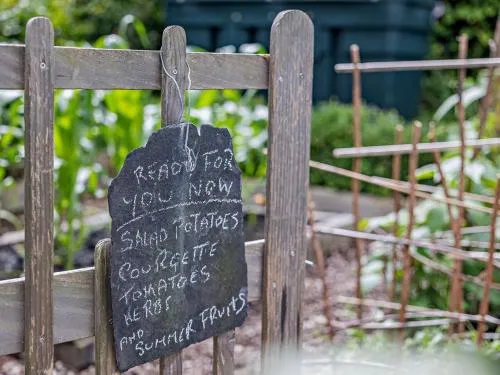 READY FOR
YOU NOW
SALAD POTATOES
COURGETTE
TOMATOES
HERBS
AND
SUMMER FRUITS